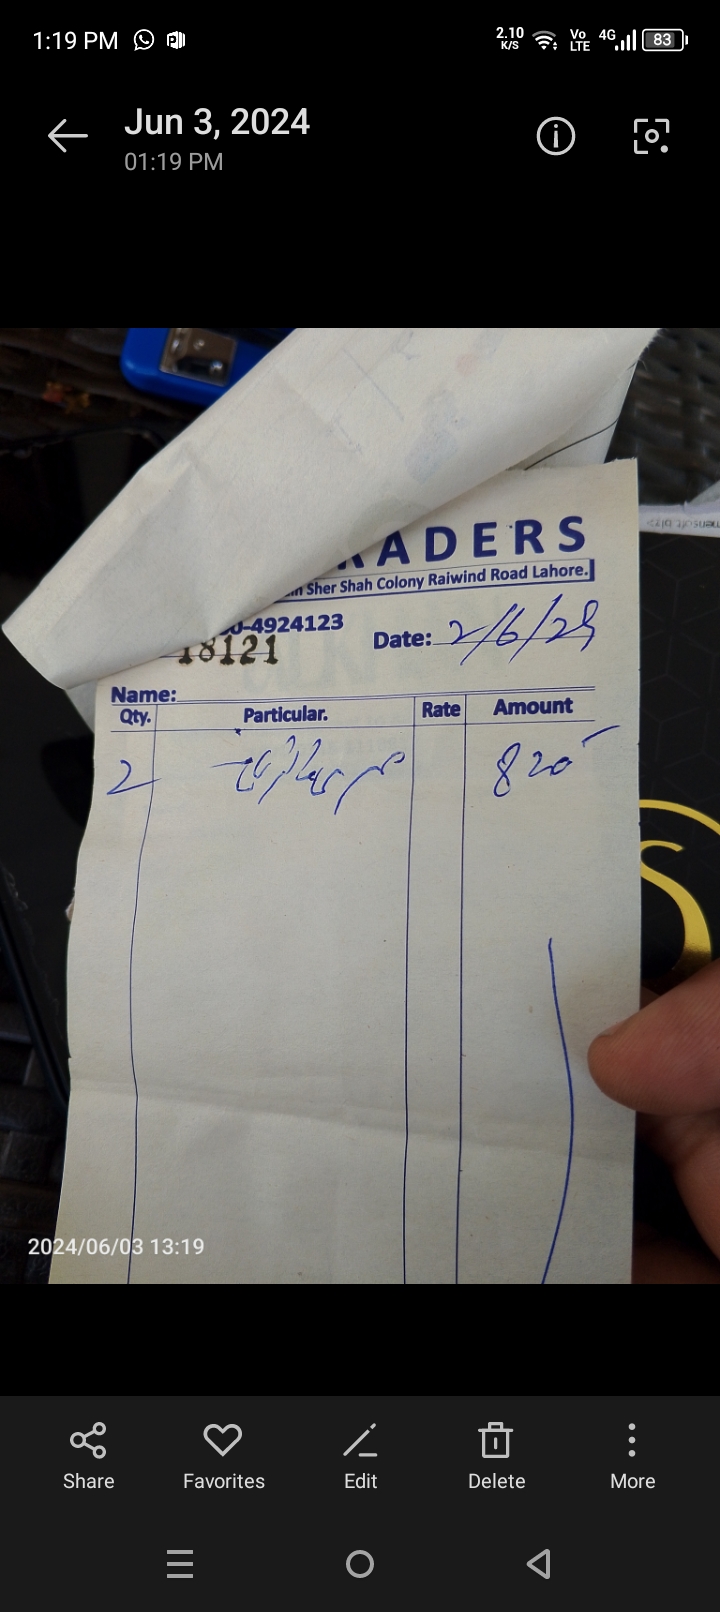 1:19 PM 2.10 K/S Vo LTE 4G 83
Jun 3, 2024
01:19 PM
RADERS
Sher Shah Colony Raiwind Road Lahore.
0-4924123
18121
Date: 2/6/24
Name:
Qty. Particular. Rate Amount
2 820
2024/06/03 13:19
Share Favorites Edit Delete More